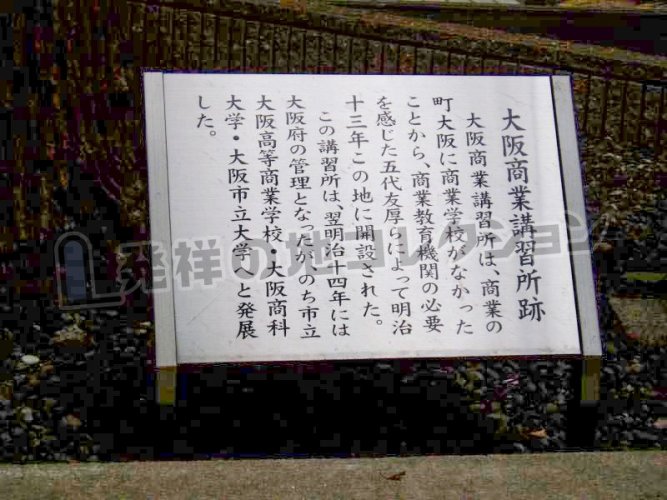 大阪商業講習所跡
大阪商業講習所は、商業の
町大阪に商業学校がなかった
ことから、商業教育機関の必要
を感じた五代友厚らによって明治
十三年この地に開設された。
この講習所は、翌明治十四年には
大阪府の管理となったがのち市立
大阪高等商業学校・大阪商科
大学・大阪市立大学へと発展
した。
発祥の地コレクション